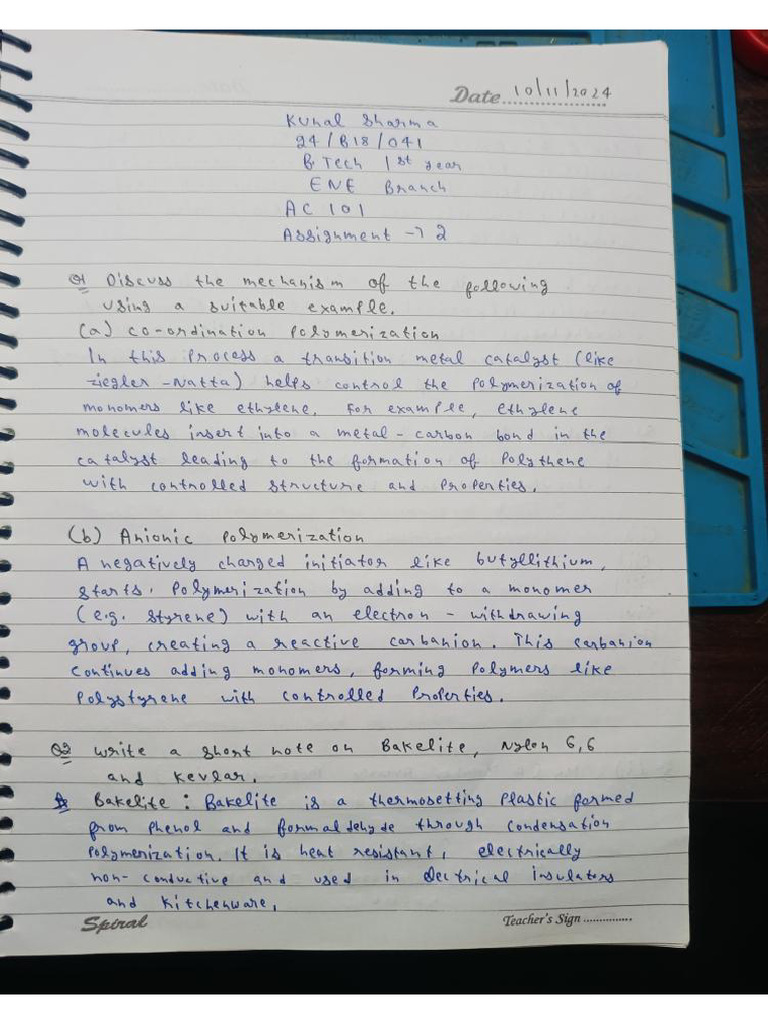 Date 10/11/2024
Kunal Sharma
24/B18/041
B.Tech 1st year
ENE Branch
AC 101
Assignment → 2
Q1 Discuss the mechanism of the following
using a suitable example.
(a) co-ordination Polymerization
In this process a transition metal catalyst (like
ziegler-Natta) helps control the polymerization of
monomers like ethylene. For example, ethylene
molecules insert into a metal-carbon bond in the
catalyst leading to the formation of Polythene
with controlled structure and Properties.
(b) Anionic Polymerization
A negatively charged initiator like butyllithium,
starts. Polymerization by adding to a monomer
(e.g. styrene) with an electron-withdrawing
group, creating a reactive carbanion. This carbanion
continues adding monomers, forming Polymers like
Polystyrene with controlled Properties.
Q2 write a short note on Bakelite, Nylon 6,6
and Kevlar.
Bakelite: Bakelite is a thermosetting Plastic formed
from Phenol and formaldehyde through condensation
Polymerization. It is heat resistant, electrically
non-conductive and used in electrical insulators
and kitchenware,
Spiral
Teacher's Sign ...............